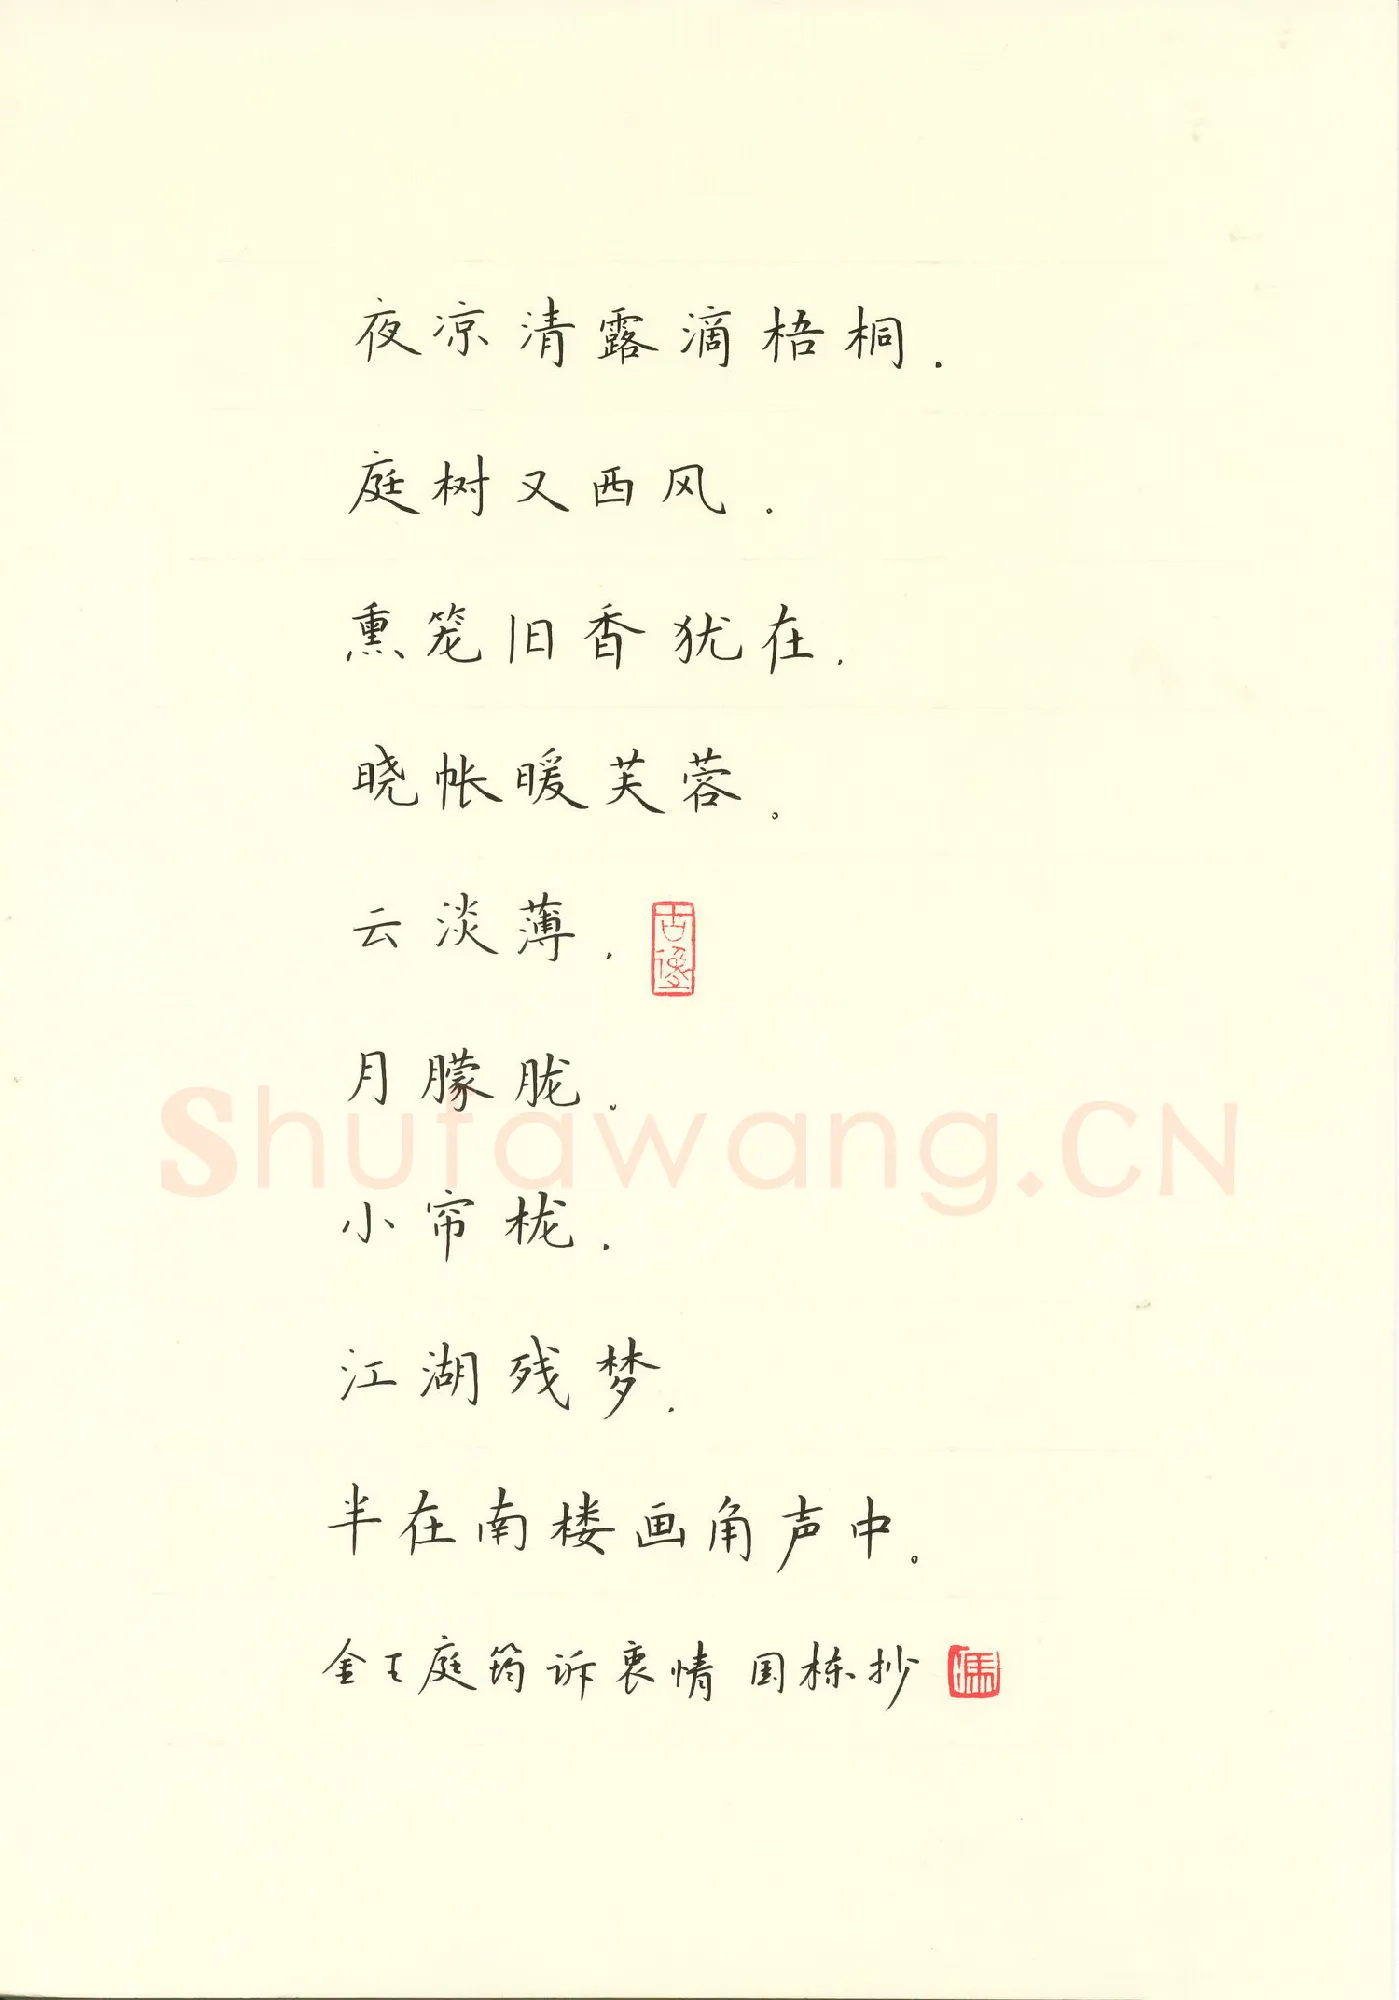 夜凉清露滴梧桐.
庭树又西风.
熏笼旧香犹在.
晓帐暖芙蓉。
云淡薄.
古缘
月朦胧.
Shufawang.CN
小帘栊.
江湖残梦.
半在南楼画角声中。
金王庭筠诉衷情 国栋抄
冯